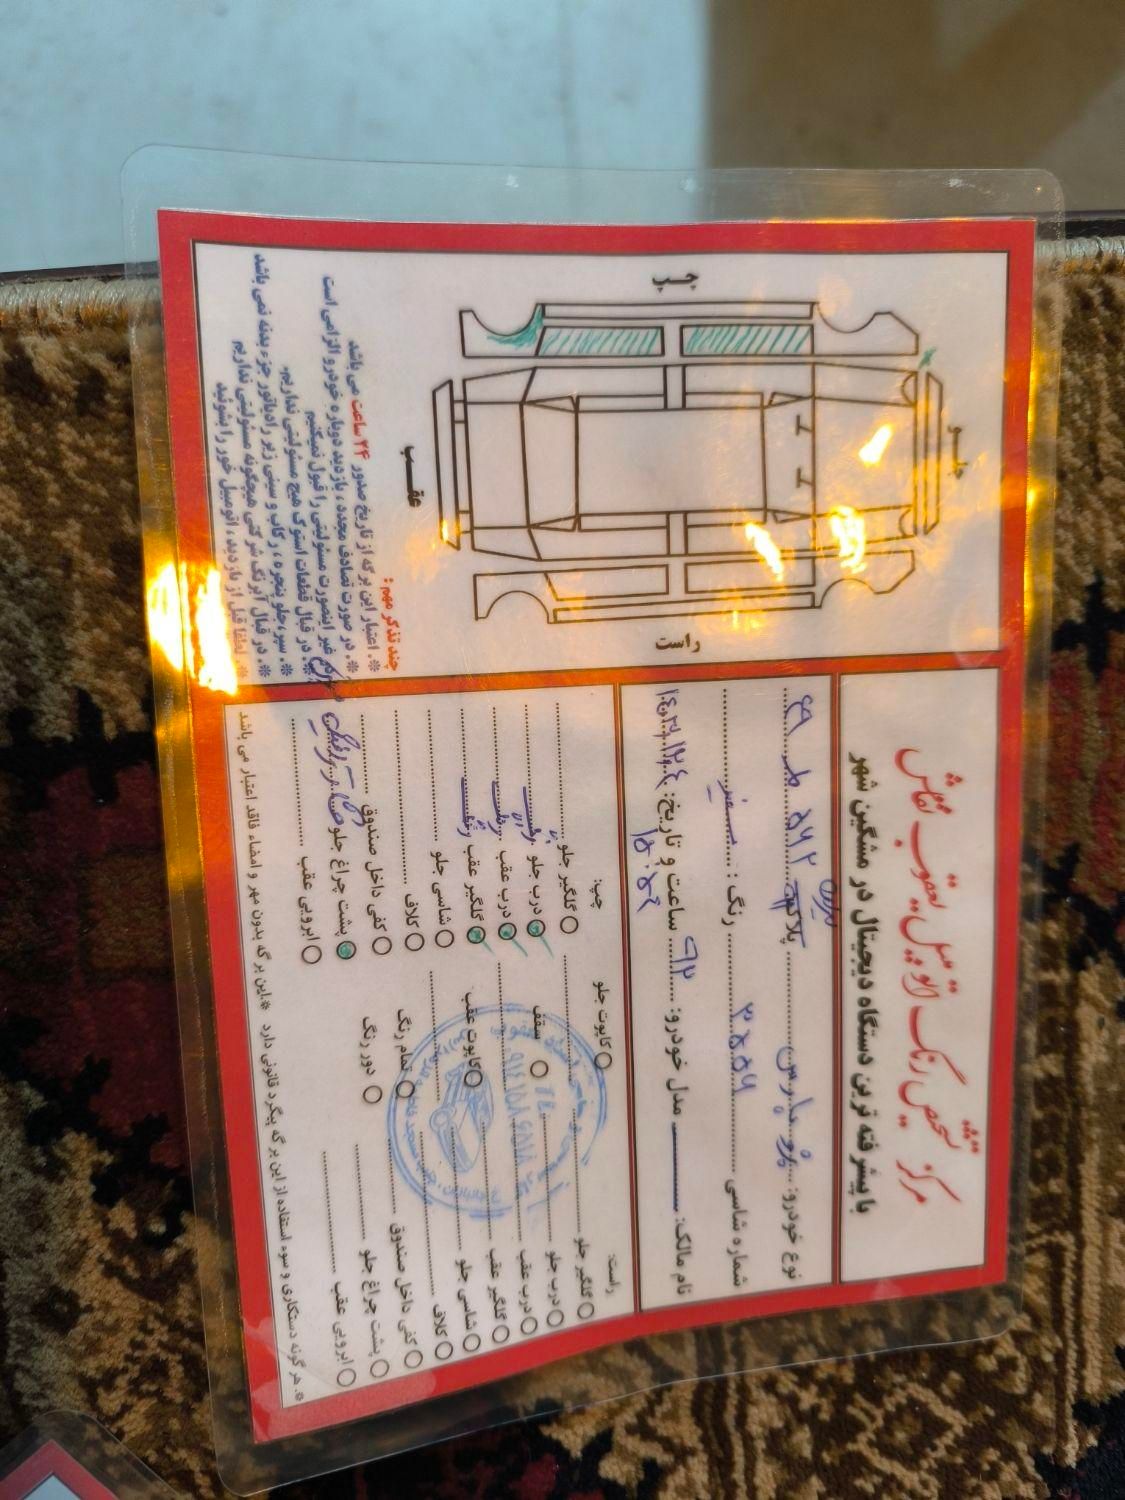 مرکز تشخیص رنگ اتومبیل یعقوب نقاش
با پیشرفته ترین دستگاه دیجیتال در مشگین شهر
نوع خودرو: پژو پارس پلاک
شماره شاسی ۳۸۵۶ رنگ: سفید
نام مالک: مدل خودرو: ۹۲ ساعت و تاریخ:
چپ
جلو
عقب
راست
چند تذکر مهم:
※. اعتبار این برگه از تاریخ صدور ۲۴ ساعت می باشد
※. در صورت تصادف مجدد، بازدید دوباره خودرو الزامی است
غیر اینصورت مسئولیتی را قبول نمیکنیم
※. در قبال قطعات استوک هیچ مسئولیتی نداریم.
※. سپر، جلو پنجره، رکاب و سینی زیر رادیاتور جزء بدنه نمی باشد
※. در قبال آبرنگ شرکتی هیچگونه مسئولیتی نداریم
※. لطفا قبل از بازدید، اتومبیل خود را بشوئید
راست:
گلگیر جلو
درب جلو
درب عقب
گلگیر عقب
شاسی جلو
کلاف
کفی داخل صندوق
پشت چراغ جلو
ابرویی عقب
کاپوت جلو
سقف
کاپوت عقب
تمام رنگ
دور رنگ
چپ:
گلگیر جلو
درب جلو
درب عقب
گلگیر عقب
شاسی جلو
کلاف
کفی داخل صندوق
پشت چراغ جلو
ابرویی عقب
※. هر گونه دستکاری و سوء استفاده از این برگه پیگرد قانونی دارد ※. این برگه بدون مهر و امضاء فاقد اعتبار می باشد